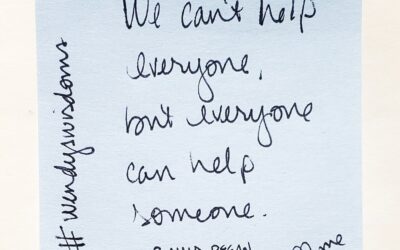 We can't help
everyone,
but everyone
can help
someone.
#wendyswisdoms